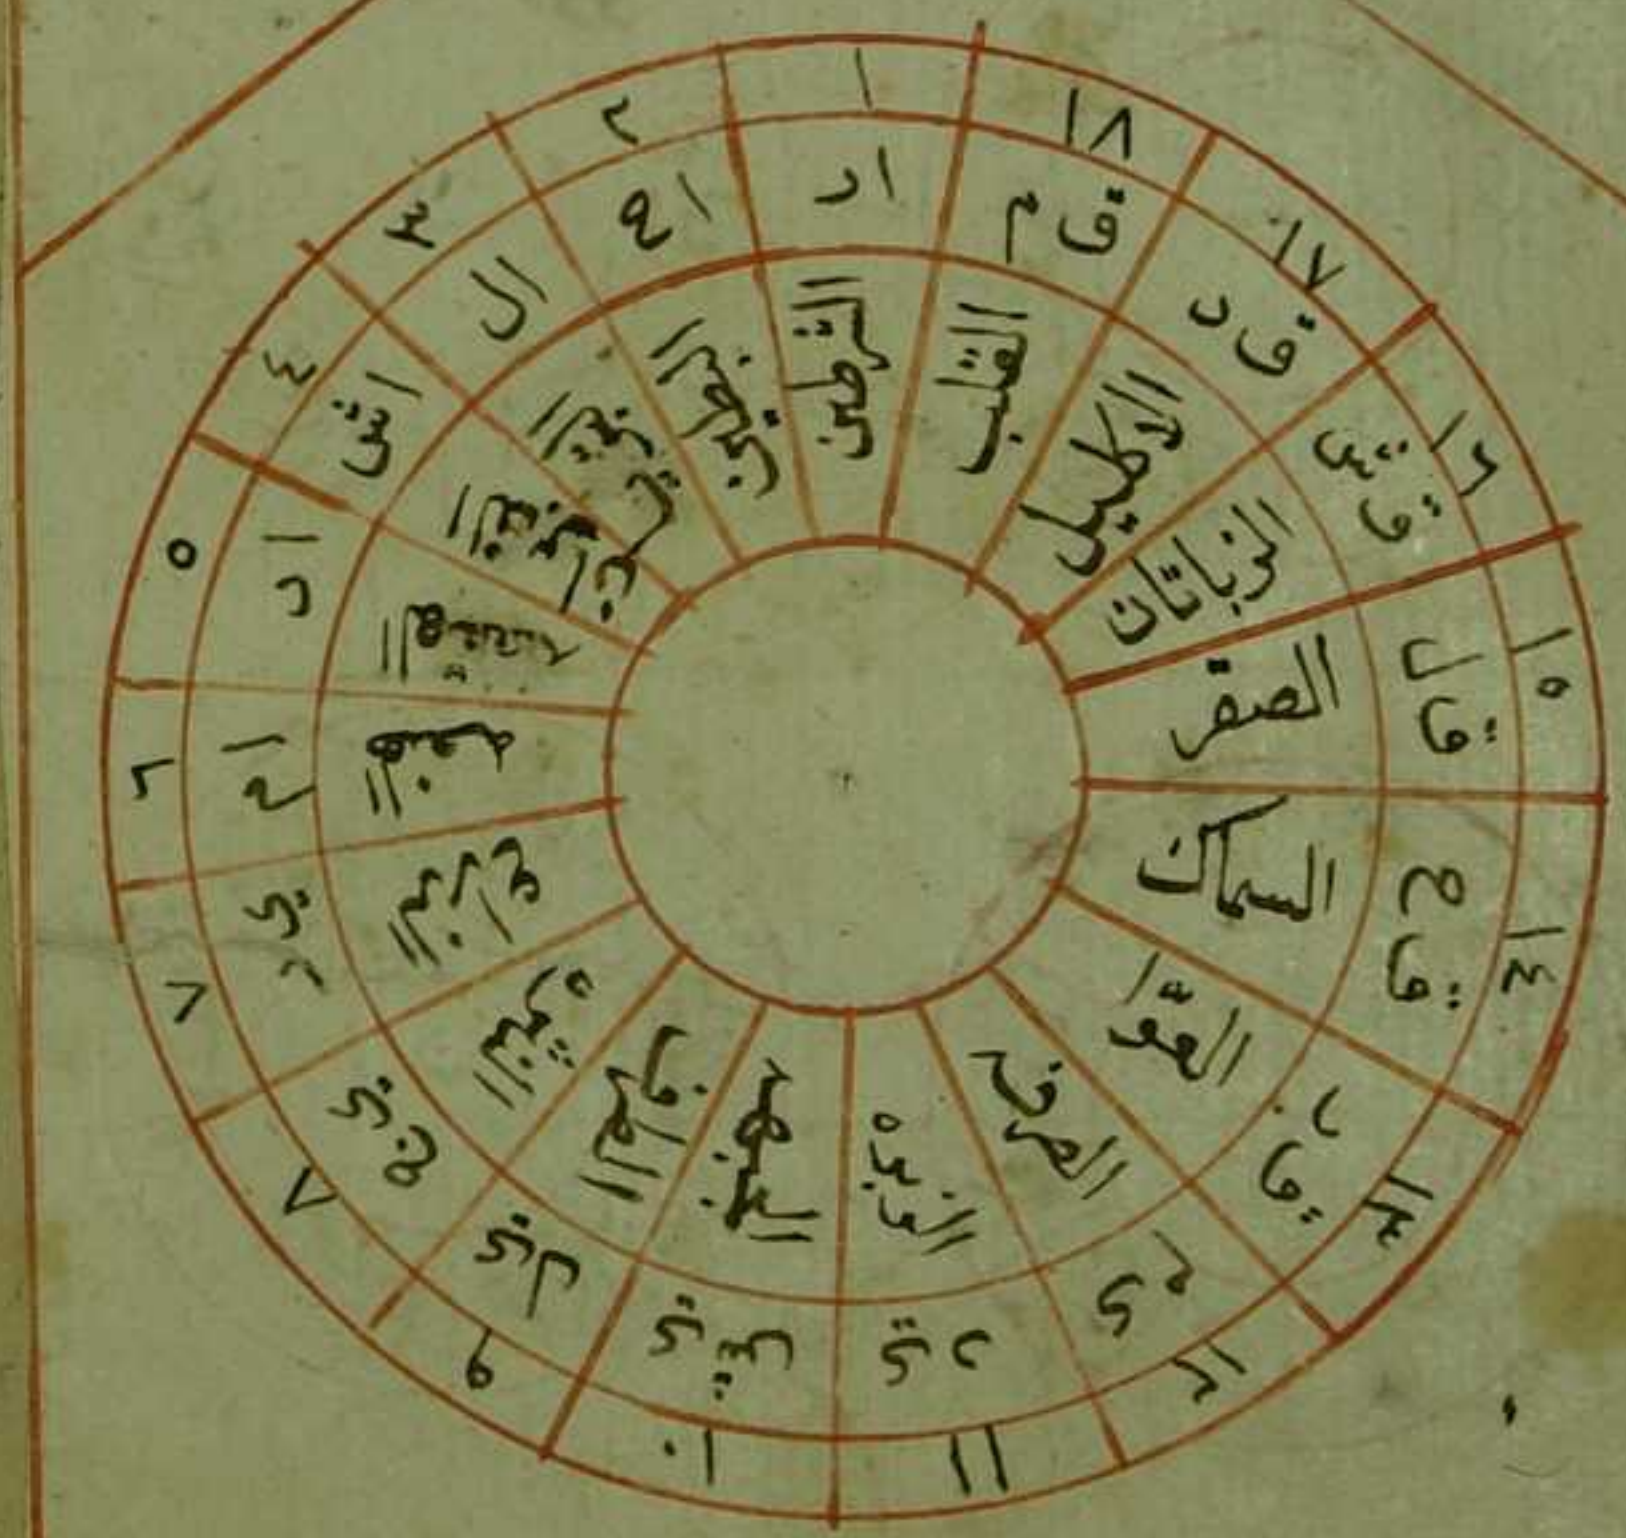 ١
ار
الشرطين
٢
اح
البطين
٣
ال
الثريا
٤
اش
الدبران
٥
اد
الهقعه
٦
ام
الهنعه
٧
ى ر
الذراع
٨
ى ح
النثره
٩
ى ل
الطرف
١٠
ى ش
الجبهه
١١
ى د
الزبره
١٢
ى م
الصرفه
١٣
ق ر
العوّا
١٤
ق ح
السماك
١٥
ق ل
الصفر
١٦
ق ش
الزباتان
١٧
ق د
الاكليل
١٨
ق م
القلب